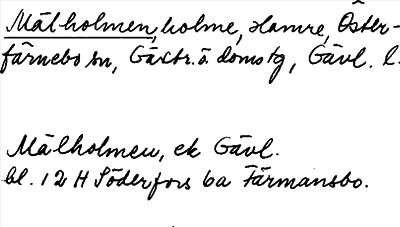 Målholmen, holme, Hamre, Öster-
färnebo sn, Gästr. ö domstg, Gävl. l.
Målholmen, ek Gävl.
bl. 12 H Söderfors 6a Färmansbo.